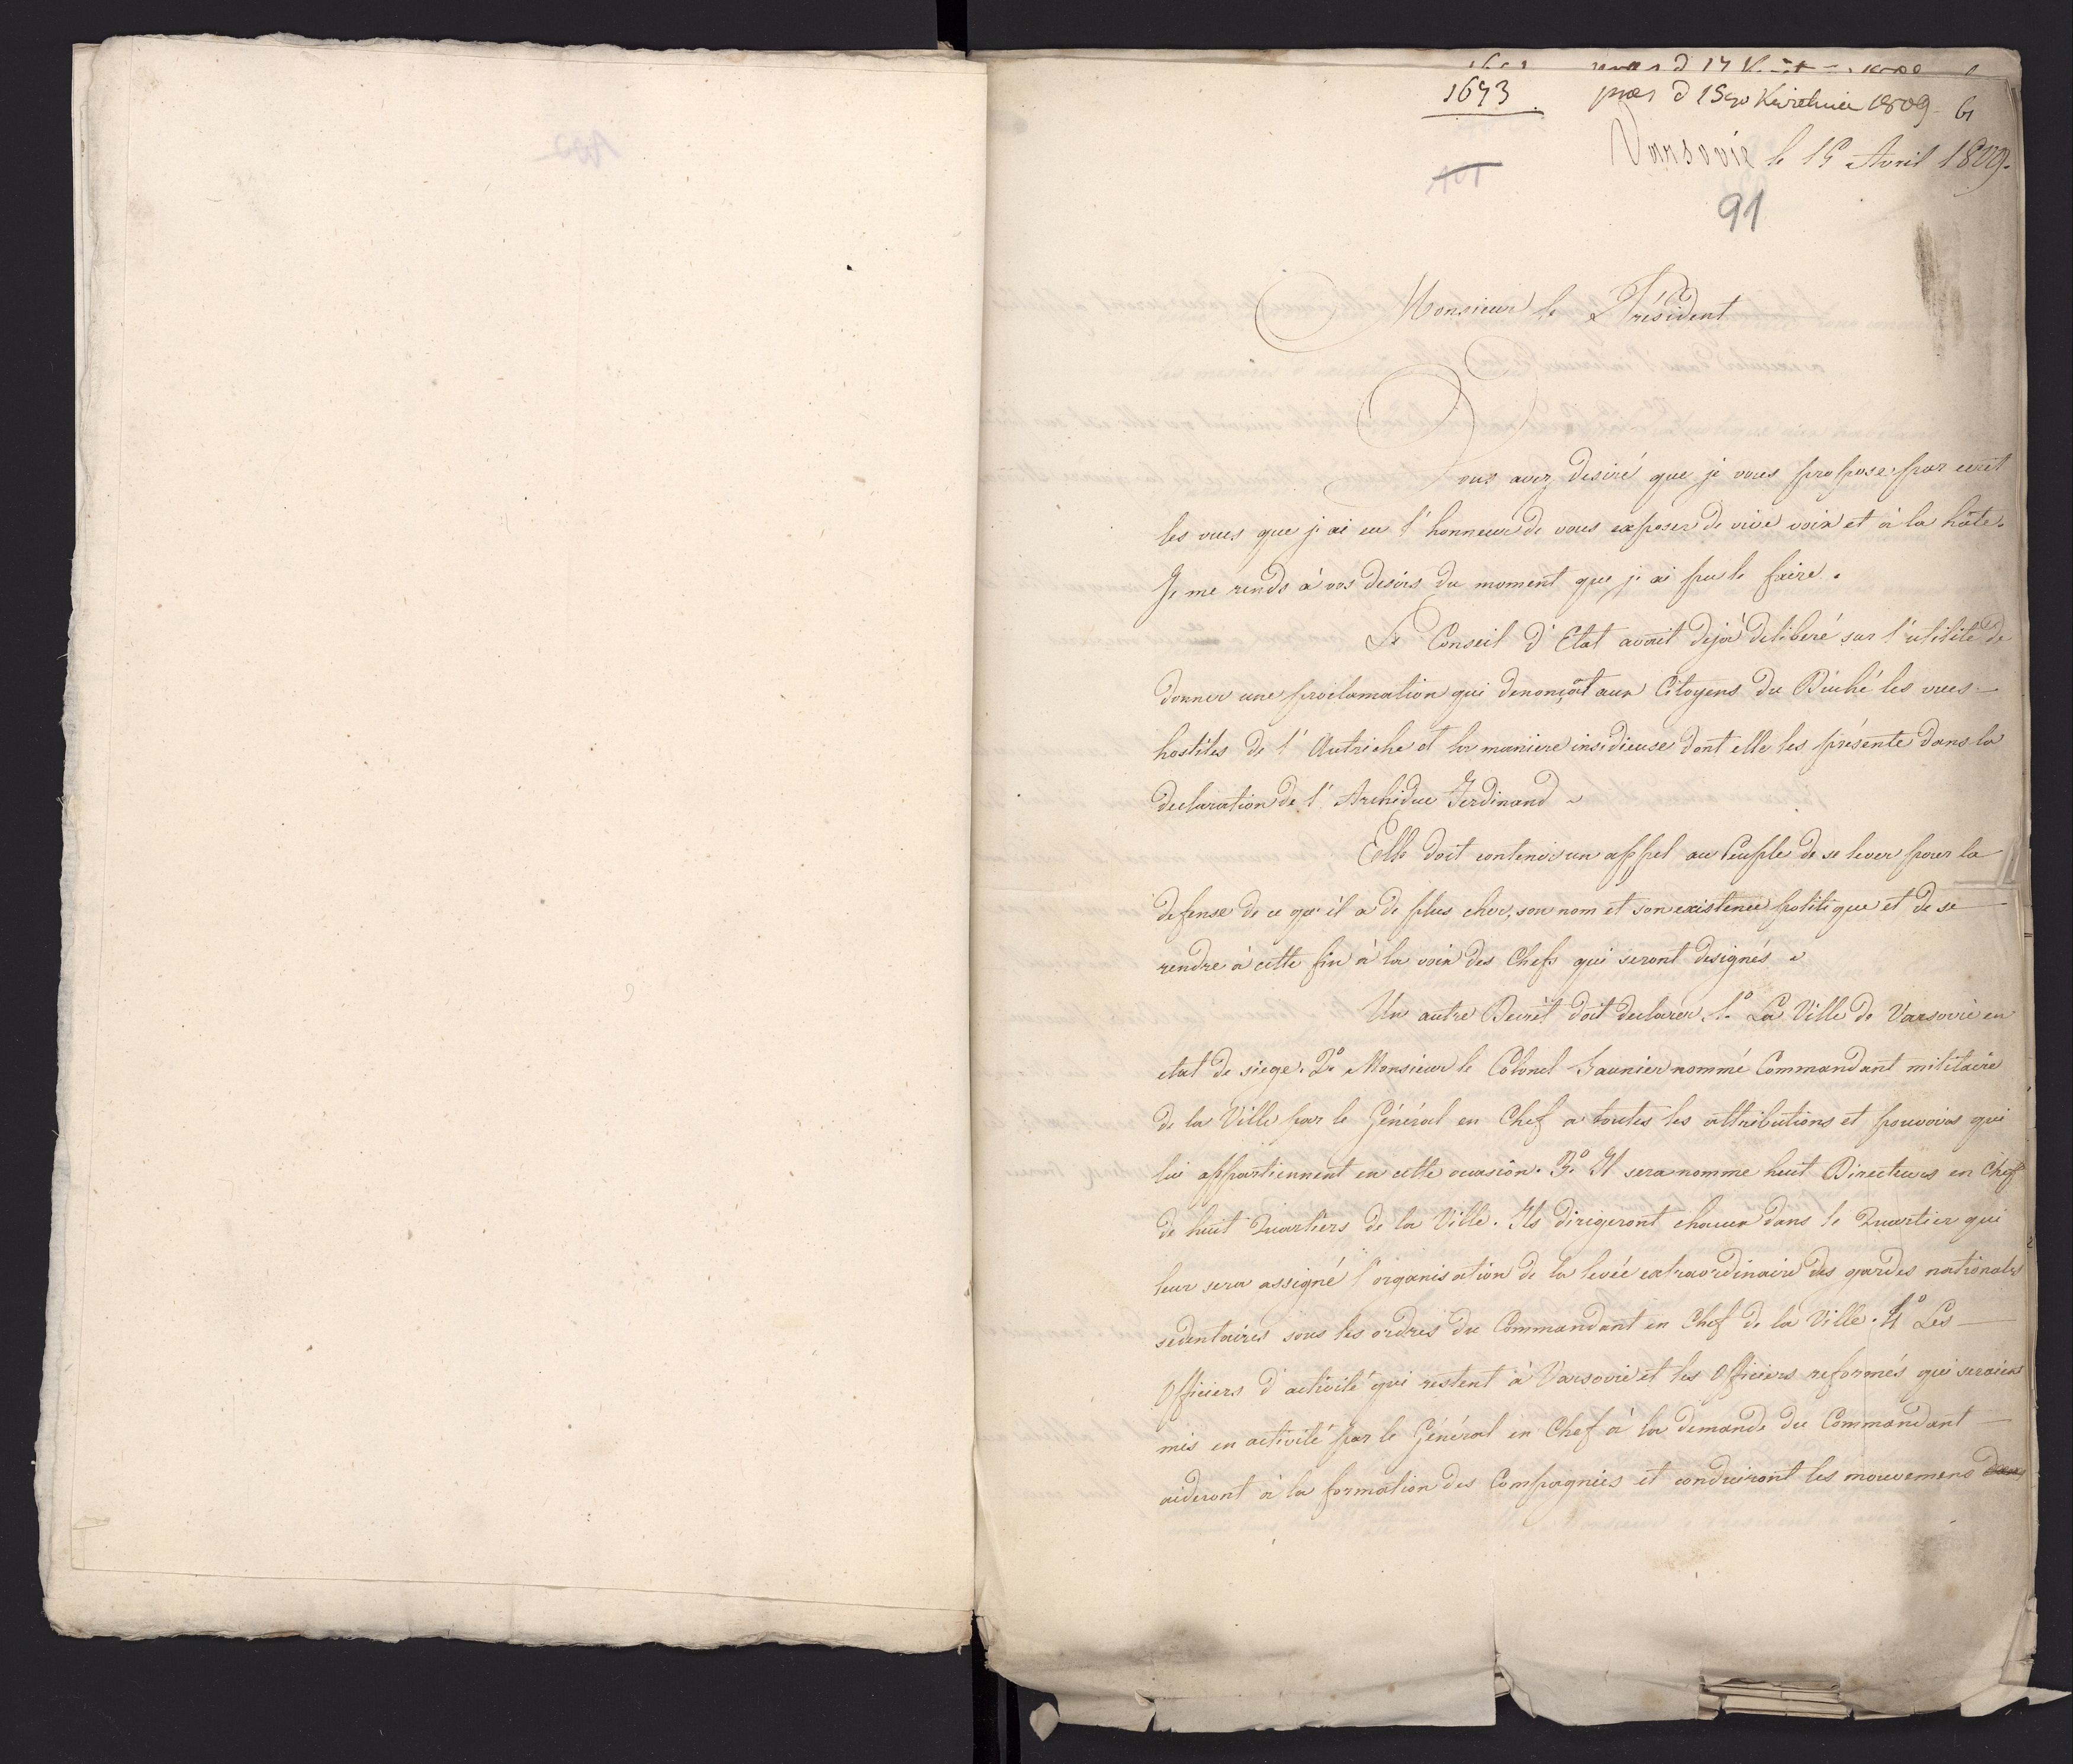 1643 præs d 15go Kwietnia 1809 61
Varsovie le 15 Avril 1809.
101
91
Monsieur le Président
Vous avez desiré que je vous propose par ecrit
les vues que j'ai eu l'honneur de vous exposer de vive voix et à la hâte.
Je me rends à vos desirs du moment que j'ai pu le faire.
Le Conseil d'Etat avait dejà deliberé sur l'utilité de
donner une proclamation qui denonçat aux Citoyens du Duché les vues
hostiles de l'Autriche et la maniere insidieuse dont elle les présente dans la
declaration de l'Archiduc Ferdinand.
Elle doit contenir un appel au Peuple de se lever pour la
defense de ce qu'il a de plus cher, son nom et son existence politique et de se
rendre à cette fin à la voix des Chefs qui seront designés.
Un autre Decrèt doit declarer 1.o La Ville de Varsovie en
etat de siege. 2.o Monsieur le Colonel Saunier nommé Commandant militaire
de la Ville par le Général en Chef a toutes les attributions et pouvoirs qui
lui appartiennent en cette occasion. 3.o Il sera nomme huit Directeurs en Chef
de huit Quartiers de la Ville. Ils dirigeront chacun dans le Quartier qui
leur sera assigné l'organisation de la levée extraordinaire des gardes nationales
sedentaires sous les ordres du Commandant en Chef de la Ville. 4o Les
Officiers d'activité qui restent à Varsovie et les Officiers reformés qui seraient
mis en activité par le Général en Chef à la demande du Commandant
aideront à la formation des Compagnies et conduiront les mouvemens